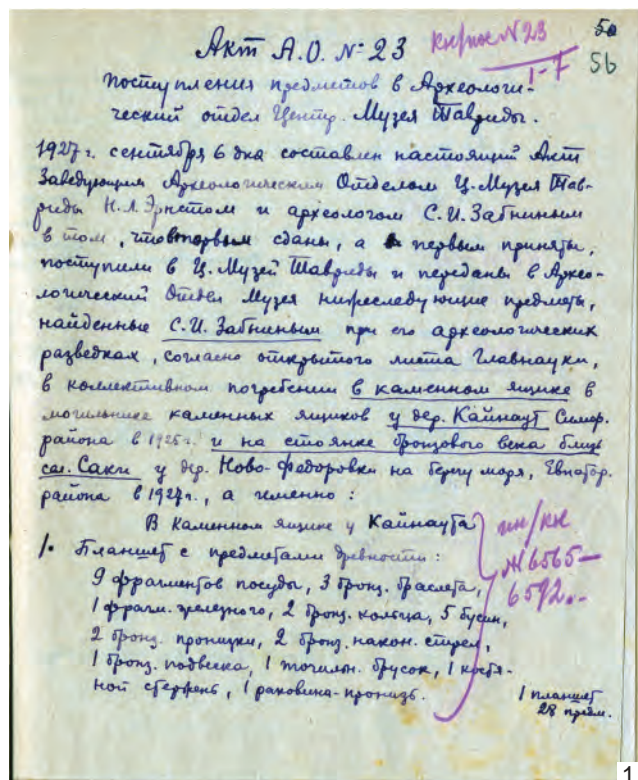 Акт А.О. № 23
кн/пк N 23
1-7
50
56
поступления предметов в Археологи-
ческий отдел Центр. Музея Тавриды.
1927 г. сентября 6 дня составлен настоящий Акт
Заведующим Археологическим Отделом Ц. Музея Тав-
риды Н.Л. Эрнстом и археологом С.И. Забниным
в том, что вторым сданы, а первым приняты,
поступили в Ц. Музей Тавриды и переданы в Архео-
логический Отдел Музея нижеследующие предметы,
найденные С.И. Забниным при его археологических
разведках, согласно открытого листа Главнауки,
в коллективном погребении в каменном ящике в
могильнике каменных ящиков у дер. Кайнаут Симф.
района в 1925 г. и на стоянке бронзового века близ
сак. Саки у дер. Ново-Федоровки на берегу моря, Евпатор.
района в 1927 г., а именно:
В каменном ящике у Кайнаута
1. Планшет с предметами древности:
9 фрагментов посуды, 3 бронз. браслета,
1 фрагм. железного, 2 бронз. кольца, 5 бусин,
2 бронз. пронизки, 2 бронз. након. стрел,
1 бронз. подвеска, 1 точильн. брусок, 1 костя-
ной стержень, 1 раковина-пронизь.
1 планшет
28 предм.
ин/кн
№ 6565—
6592
1